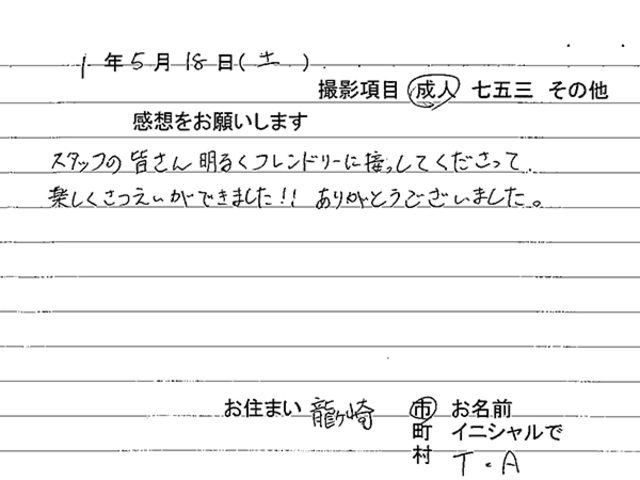 1年5月18日(土)
撮影項目 成人 七五三 その他
感想をお願いします
スタッフの皆さん明るくフレンドリーに接っしてくださって
楽しくさつえいができました!! ありがとうございました。
お住まい 龍ヶ崎 市 お名前
町 イニシャルで
村 T・A